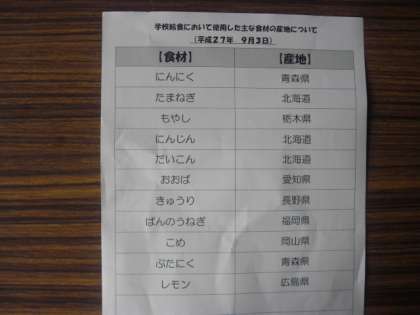 学校給食において使用した主な食材の産地について
（平成２７年　９月３日）
【食材】　【産地】
にんにく　青森県
たまねぎ　北海道
もやし　栃木県
にんじん　北海道
だいこん　北海道
おおば　愛知県
きゅうり　長野県
ばんのうねぎ　福岡県
こめ　岡山県
ぶたにく　青森県
レモン　広島県